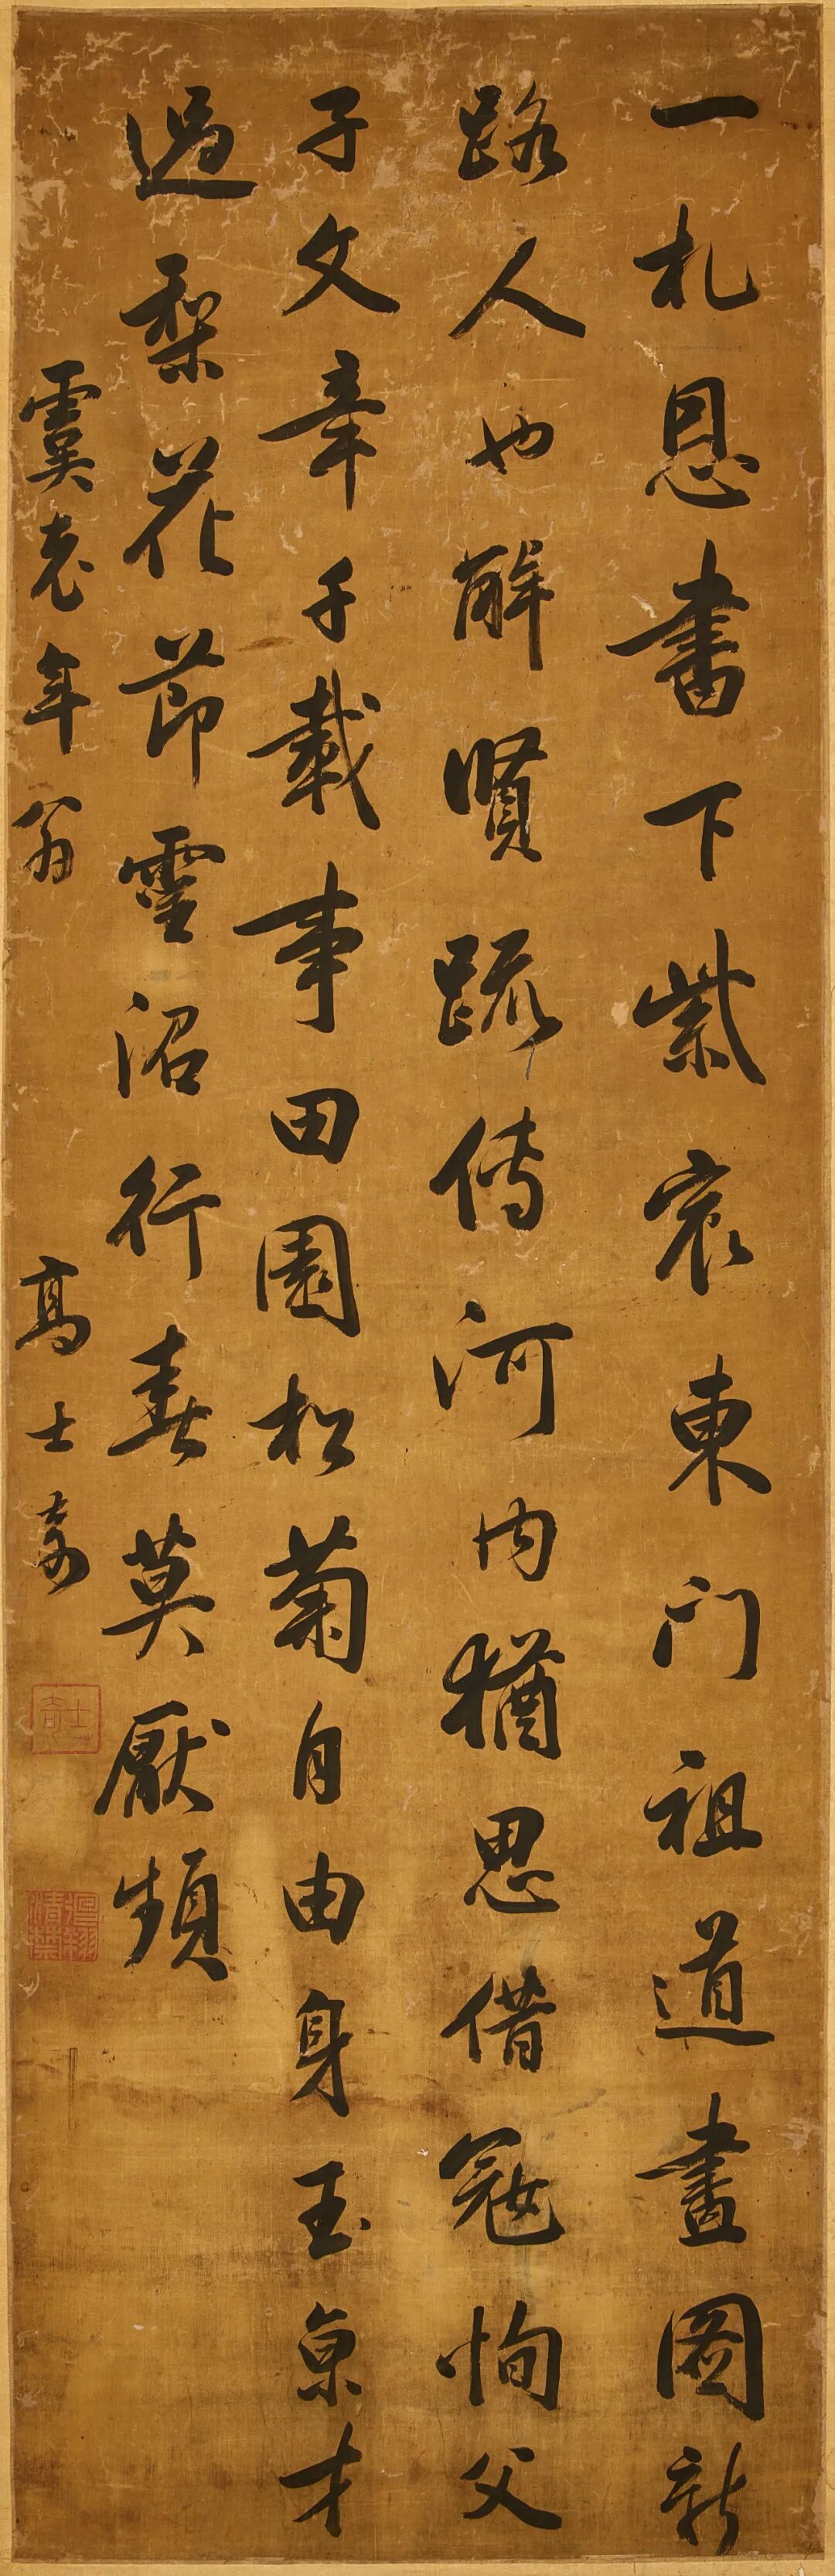 一札恩書下紫宸東門祖道畫圖新
路人也解賢疏傳河內猶思借寇恂父
子文章千載事田園松菊自由身玉泉才
過梨花節靈沼行春莫厭頻
虞老年翁
高士奇
士奇